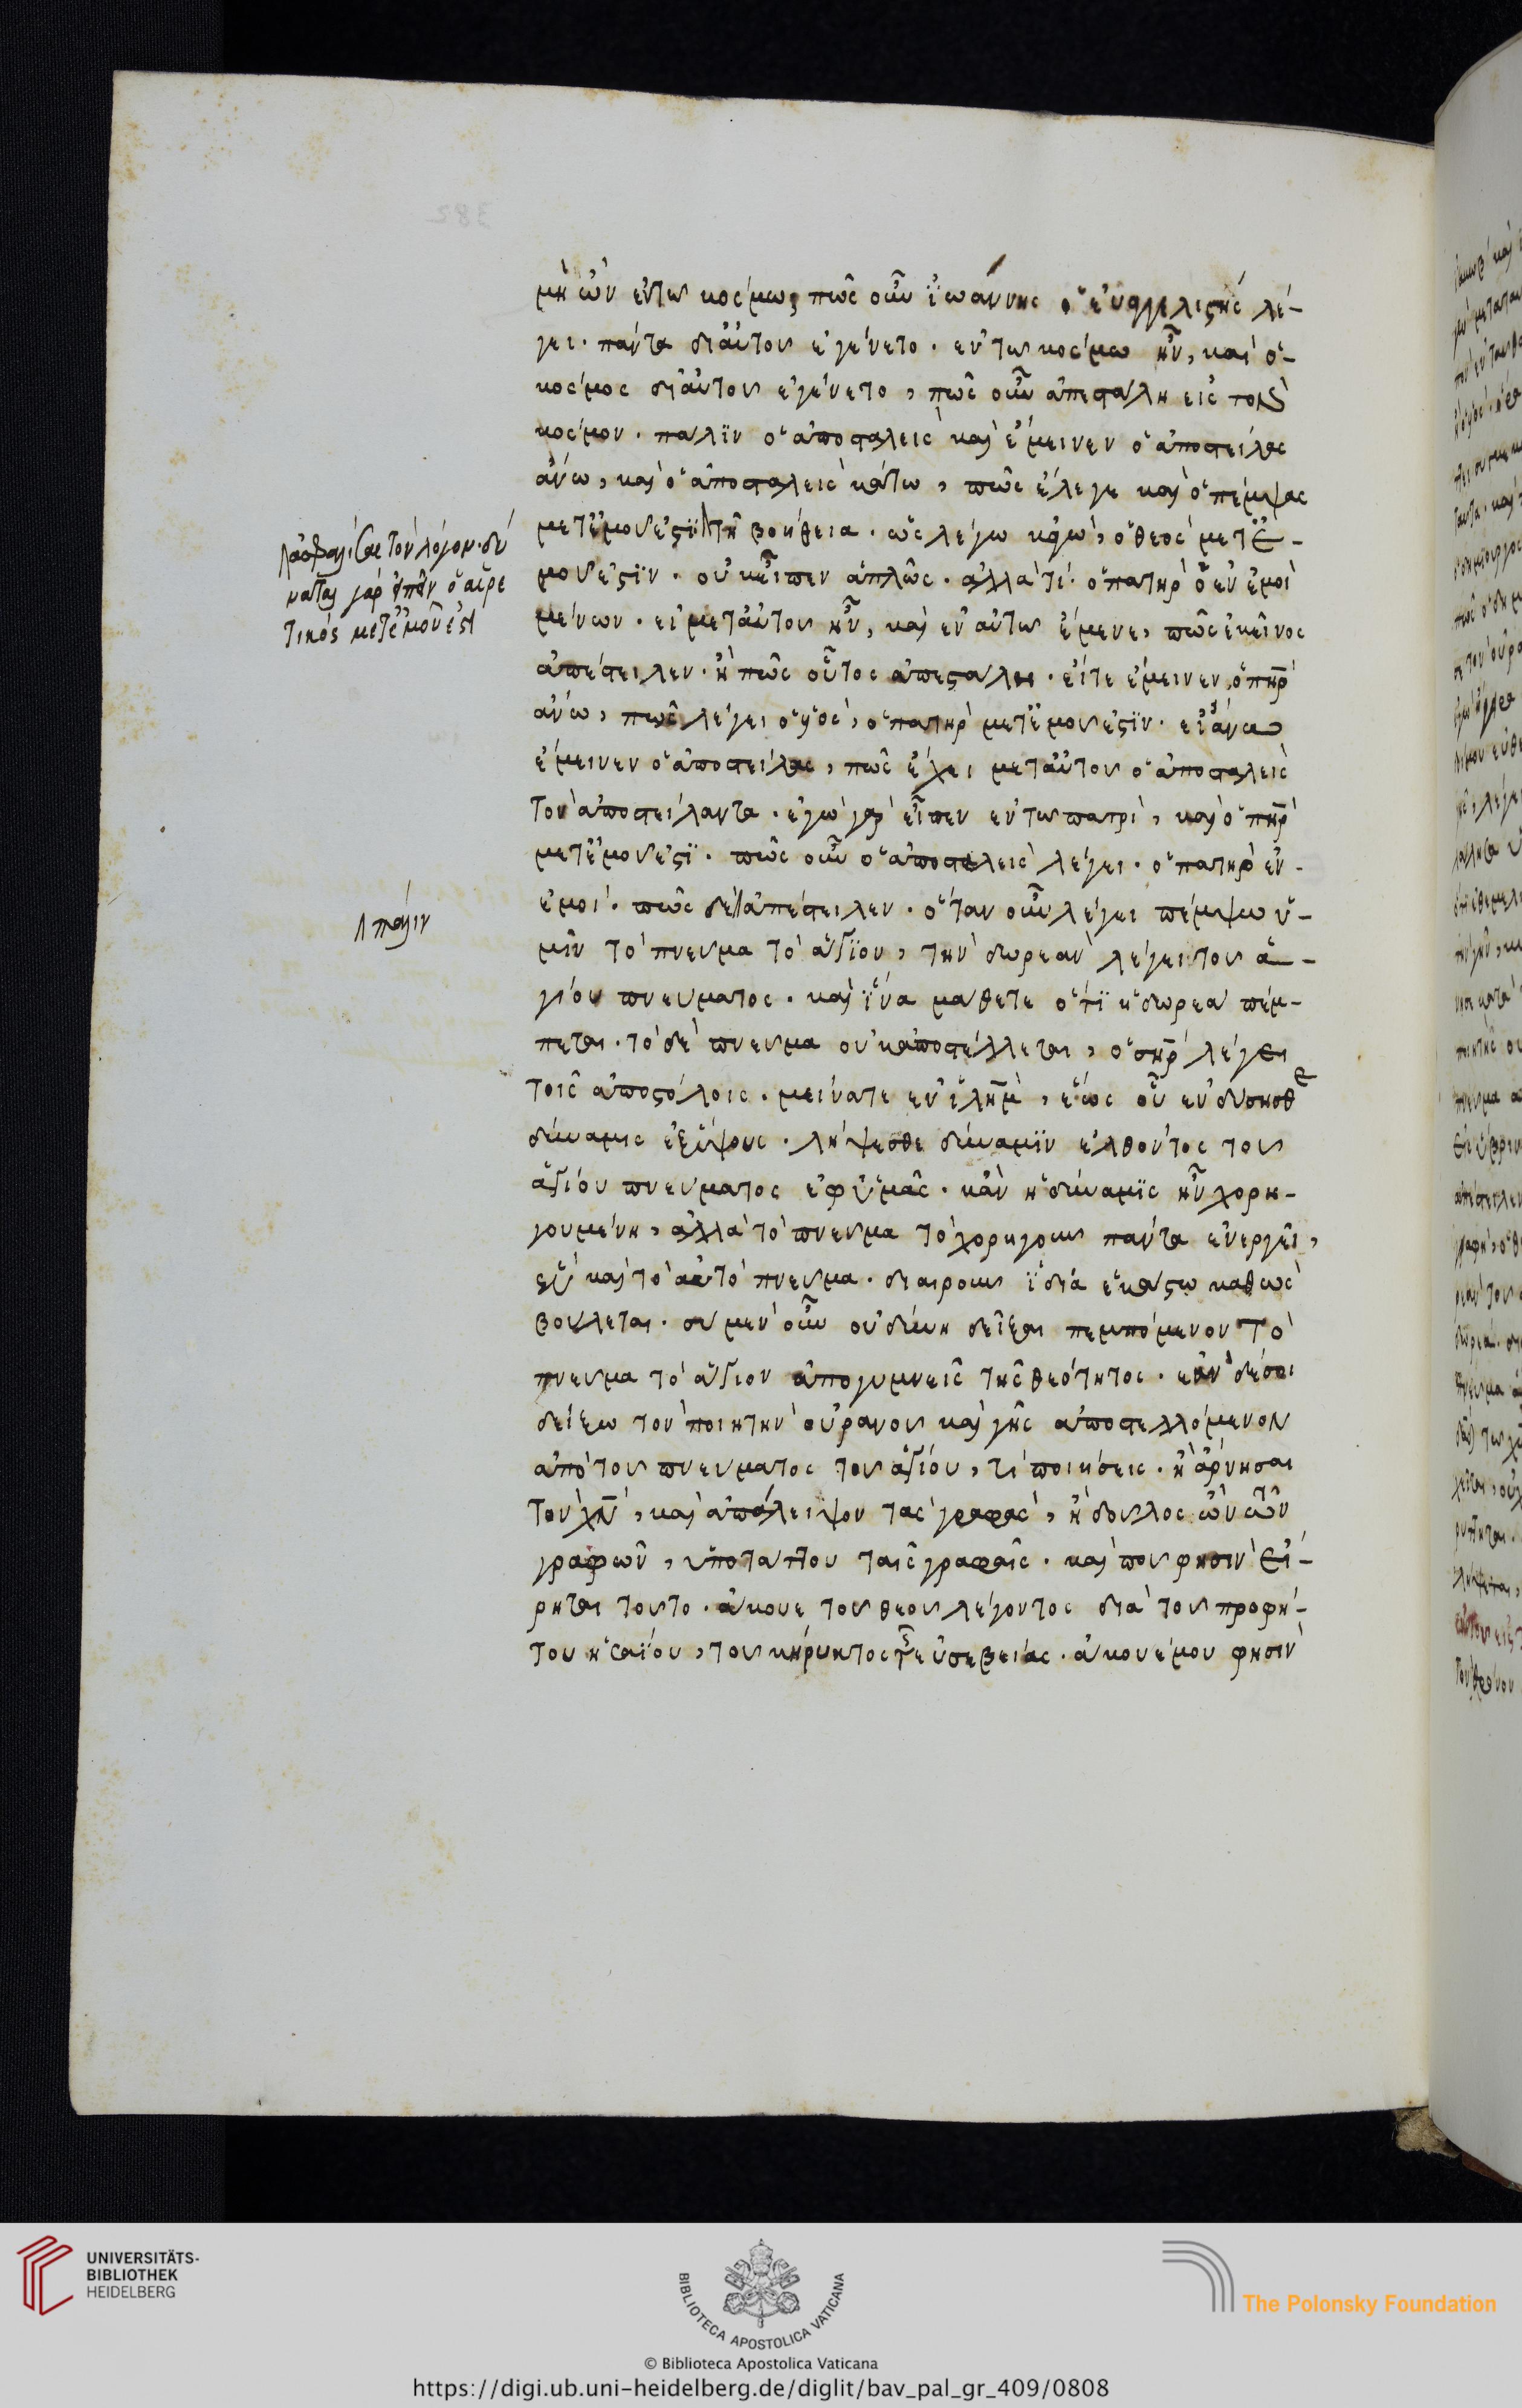 μὴ ὢν ἐν τω κόσμω, πῶς οὖν ἰωάννης ὁ εὐαγγελιστὴς λέ-
γει. πάντα δι αὐτου ἐγένετο. ἐν τω κόσμω ἦν, καὶ ὁ-
κόσμος δι αὐτου ἐγένετο, πῶς οὖν ἀπεστάλη εἰς τὸν
κόσμον. πάλϊν ὁ ἀποσταλεὶς καὶ ἔμεινεν ὁ ἀποστείλας
ἄνω, καὶ ὁ ἀποσταλεὶς κάτω, πῶς ἔλεγε καὶ ὁ πέμψας
μετ ἐμου ἐστϊ τῆ βοήθεια. ὡς λέγω κἀγὼ, ὁ θεὸς μετ ἐ-
μου ἐστϊν. οὐκ εἶπεν ἁπλῶς. ἀλλὰ τί. ὁ πατὴρ ὁ ἐν ἐμοὶ
μένων. εἰ μετ αὐτου ἦν, καὶ ἐν αὐτω ἔμενε, πῶς ἐκεῖνος
ἀπέστειλεν. ἢ πῶς οὗτος ἀπεστάλη. εἴτε ἔμεινεν ὁ πηρ
ἄνω, πῶς λέγει ὁ υἱὸς, ὁ πατὴρ μετ ἐμου ἐστϊν. εἰ ἄνω
ἔμεινεν ὁ ἀποστείλας, πῶς ἔχει μετ αὐτου ὁ ἀποσταλεὶς
τὸν ἀποστείλαντα. ἐγὼ γὰρ εἶπεν ἐν τω πατρὶ, καὶ ὁ πηρ
μετ ἐμου ἐστϊ. πῶς οὖν ὁ ἀποσταλεὶς λέγει. ὁ πατὴρ ἐν-
ἐμοί. πῶς δὲ ἀπέστειλεν. ὅταν οὖν λέγει πέμψω ὑ-
μῖν τὸ πνευμα τὸ ἅγϊον, τὴν δωρεὰν λέγει του ἁ-
γίου πνευματος. καὶ ἵνα μάθετε ὅτϊ ἡ δωρεὰ πέμ-
πεται. τὸ δὲ πνευμα οὐκ ἀποστέλλεται, ὁ σηρ λέγει
τοις ἀποστόλοις. μείνατε ἐν ἱλημ, ἕως οὗ ἐνδυσησθε
δύναμις ἐξ ὕψους. λήψεσθε δύναμϊν ἐλθόντος του
ἁγίου πνευματος ἐφ ὑμᾶς. κἂν ἡ δύναμϊς ἦν χορη-
γουμένη, ἀλλὰ τὸ πνευμα τὸ χορηγουν πάντα ἐνεργει,
ἓν καὶ τὸ αὐτὸ πνευμα. διαιρουν ἰδία ἑκάστω καθὼς
βούλεται. σὺ μὲν οὖν οὐ δύνη δεῖξαι πεμπόμενον τὸ
πνευμα τὸ ἅγιον ἀπογυμνεις της θεότητος. ἐὰν δέ σοι
δείξω τὸν ποιητὴν οὐρανου καὶ γῆς ἀποστελλόμενον
ἀπὸ του πνευματος του ἁγίου, τί ποιήσεις. ἢ ἄρνησαι
τὸν χν, καὶ ἀπάλειψον τὰς γραφὰς, ἢ δουλος ὢν τῶν
γραφῶν, ὑποτάττου ταις γραφαῖς. καὶ που φησιν εἴ-
ρηται τουτο. ἄκουε του θεου λέγοντος διὰ του προφή-
του ησαΐου, του κήρυκος της εὐσεβείας. ἄκουέ μου φησιν
ἀσφάλισαι τὸν λόγον. δύ
ναται γὰρ εἰπεῖν ὁ αἱρε
τικὸς μετ ἐμοῦ ἐστ
πάλιν
382
UNIVERSITÄTS-
BIBLIOTHEK
HEIDELBERG
BIBLIOTECA APOSTOLICA VATICANA
The Polonsky Foundation
© Biblioteca Apostolica Vaticana
https://digi.ub.uni-heidelberg.de/diglit/bav_pal_gr_409/0808